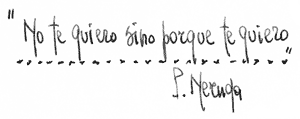 "No te quiero sino porque te quiero"
P. Neruda